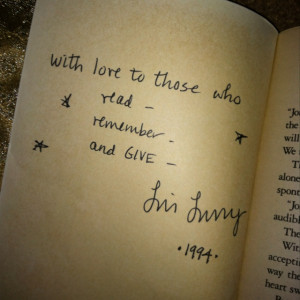 with love to those who
read -
remember -
and GIVE -
Lois Lowry
· 1994 ·
"Jo
the
will
We
Th
alone
spont
"Jo
audibl
The
With
accepti
way the
heart sw